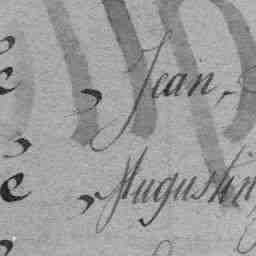 e , Jean,
e , Augustin